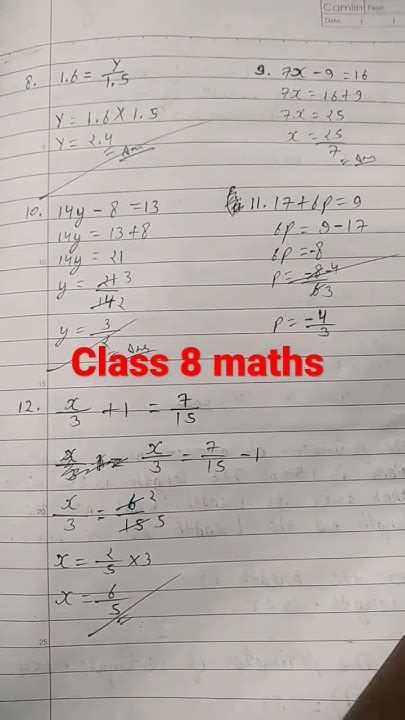 Camlin Page
Date / /
8. 1.6 = y/1.5
y = 1.6 x 1.5
y = 2.4
Ans
9. 7x - 9 = 16
7x = 16 + 9
7x = 25
x = 25/7
Ans
10. 14y - 8 = 13
14y = 13 + 8
14y = 21
y = 21 3/14 2
y = 3/2
Ans
11. 17 + 6p = 9
6p = 9 - 17
6p = -8
p = -8 -4/6 3
p = -4/3
Class 8 maths
12. x/3 + 1 = 7/15
x/3 = 7/15 - 1
x/3 = 6 2/15 5
x = 2/5 x 3
x = 6/5
10
15
20
25